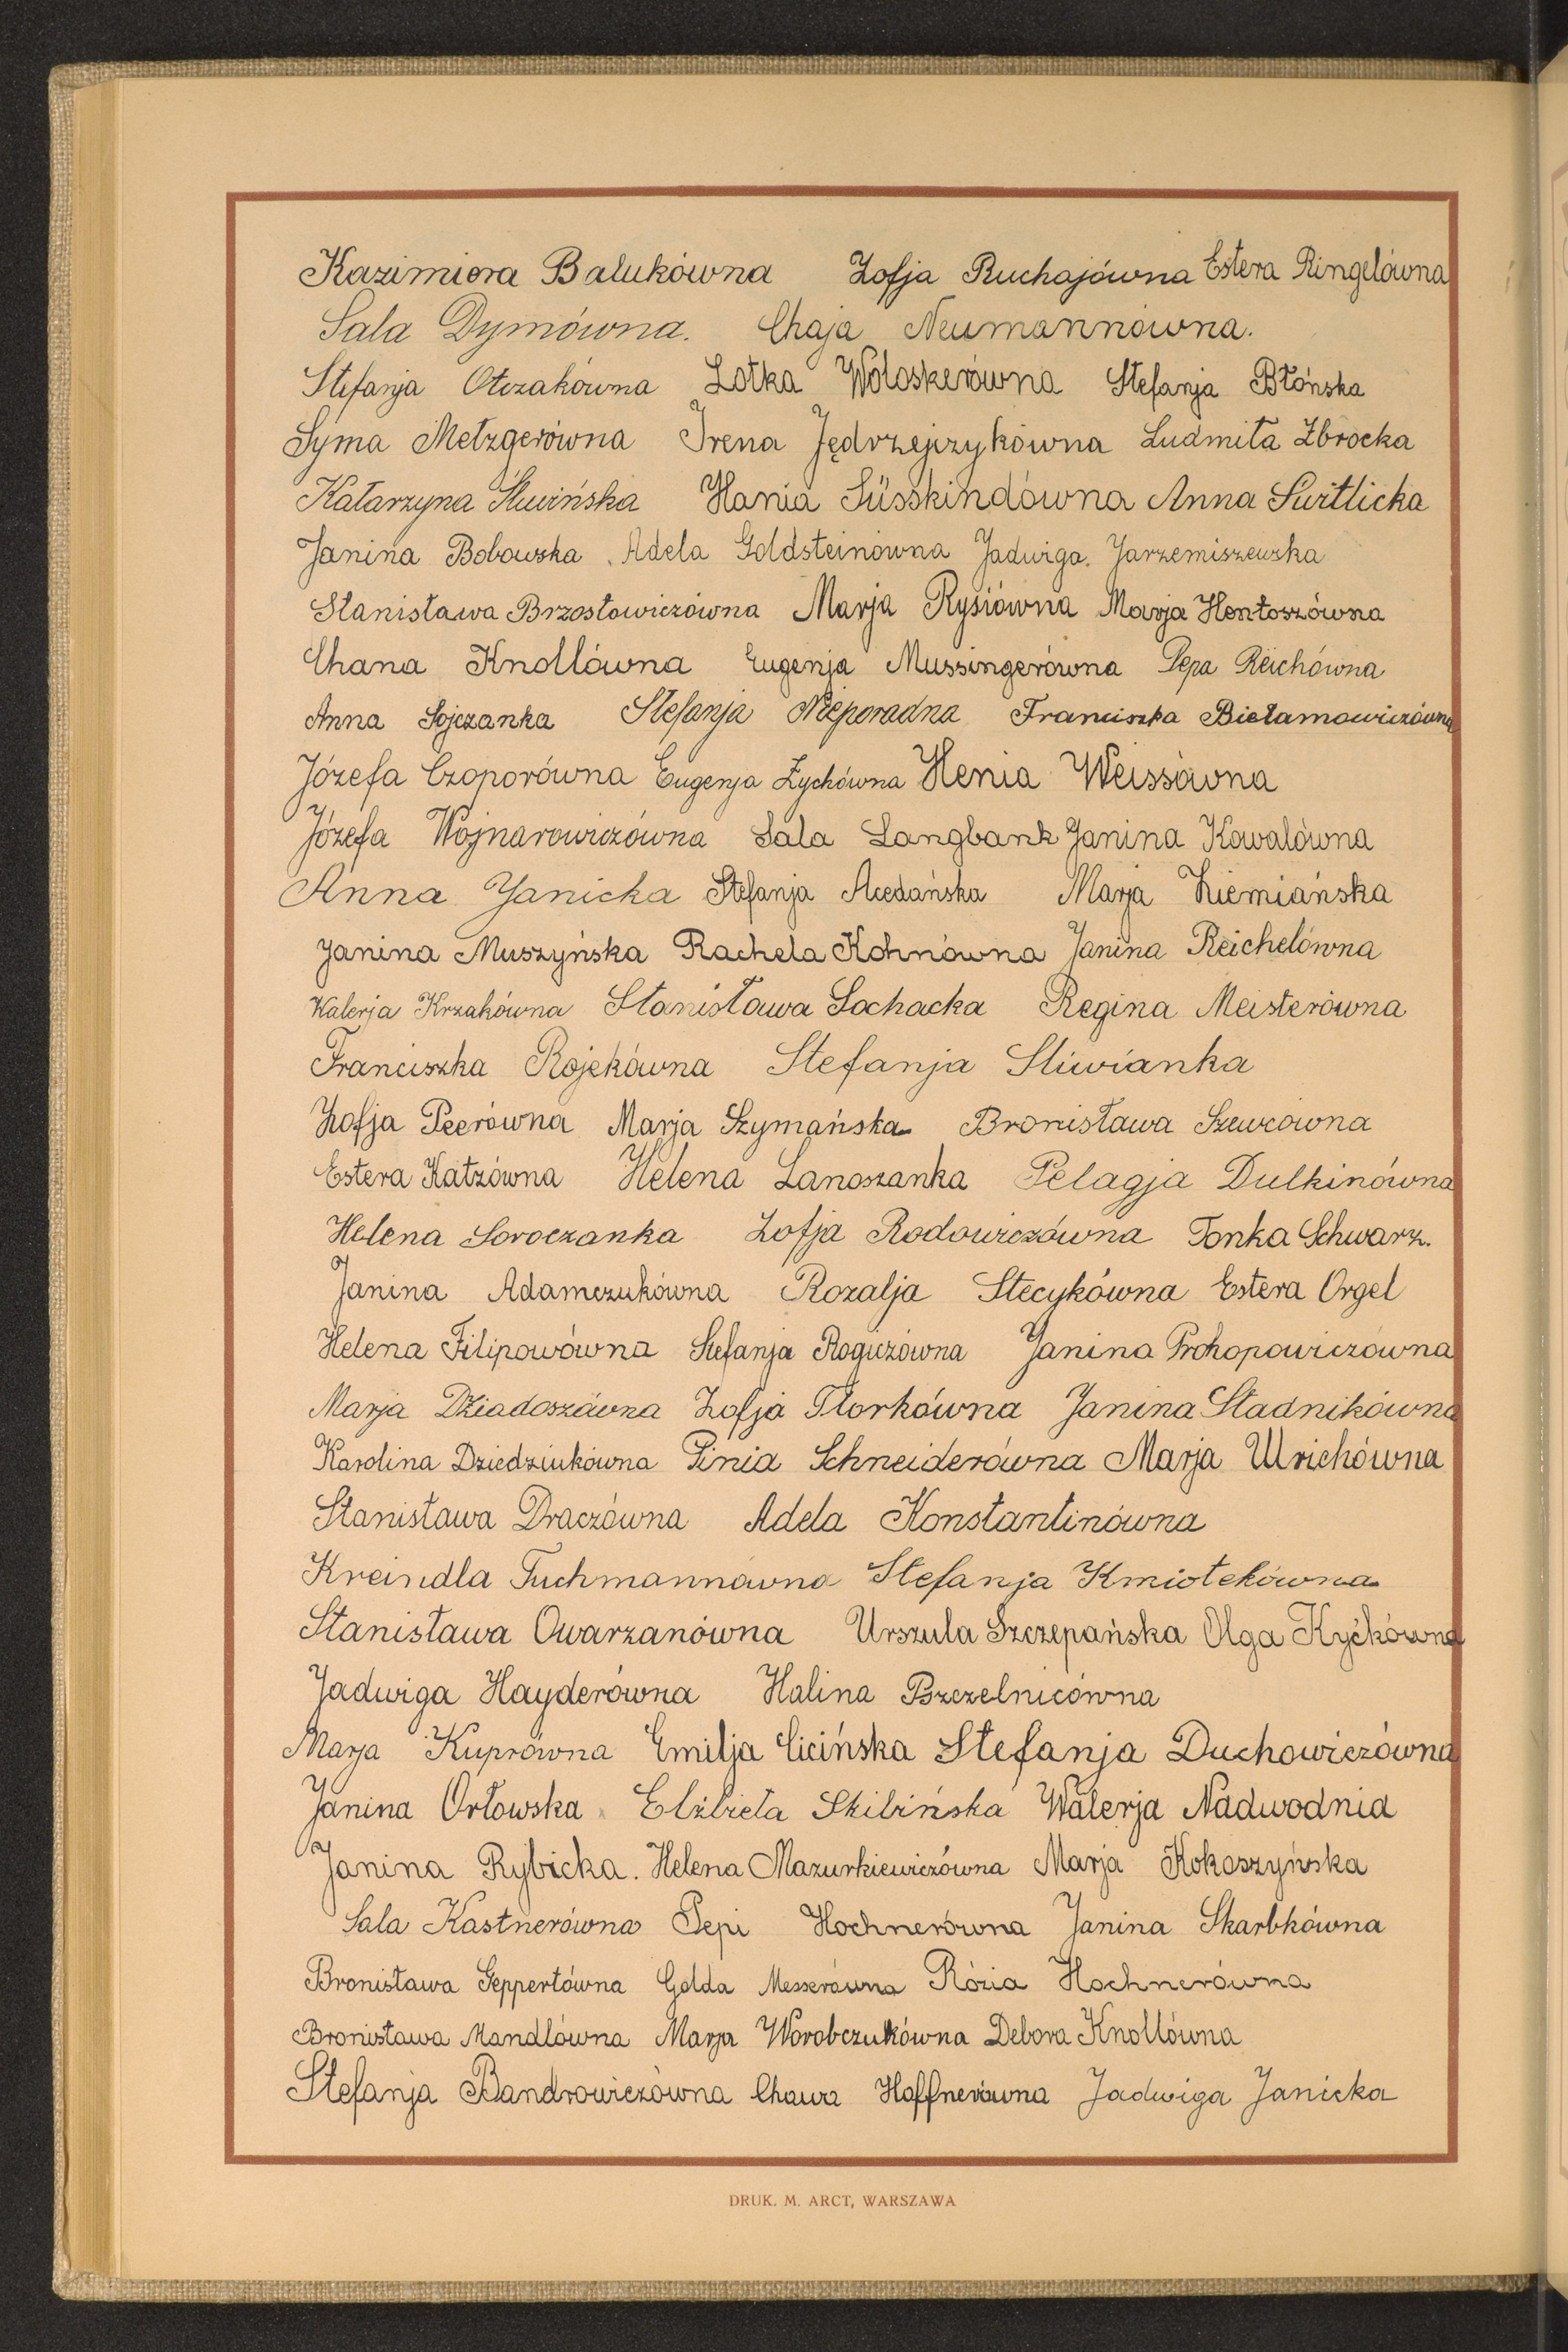 Kazimiera Balukówna Zofja Ruchajówna Estera Ringelówna
Sala Dymówna. Chaja Neumannówna.
Stefanja Otczakówna Lotka Wołoskerówna Stefanja Błońska
Syma Metzgerówna Irena Jędrzejczykówna Ludmiła Zbrocka
Katarzyna Śliwińska Hania Süsskindówna Anna Switlicka
Janina Bobowska Adela Goldsteinówna Jadwiga Jarzemiszewska
Stanisława Brzostowiczówna Marja Rysiówna Marja Hentoszówna
Chana Knollówna Eugenja Mussingerówna Pepa Reichówna
Anna Sojczanka Stefanja Nieporadna Franciszka Bielamowiczówna
Józefa Czoporówna Eugenja Zychówna Henia Weissówna
Józefa Wojnarowiczówna Sala Langbank Janina Kowalówna
Anna Janicka Stefanja Acedańska Marja Ziemiańska
Janina Muszyńska Rachela Kohnówna Janina Reichelówna
Walerja Krzakówna Stanisława Sochacka Regina Meisterówna
Franciszka Rojekówna Stefanja Sliwianka
Zofja Peerówna Marja Szymańska Bronisława Szewcówna
Estera Katzówna Helena Lanoszanka Pelagja Dulkinówna
Helena Soroczanka Zofja Rodowiczówna Tonka Schwarz.
Janina Adamczukówna Rozalja Stecykówna Estera Orgel
Helena Filipowówna Stefanja Rogiczówna Janina Prokopowiczówna
Marja Dziadoszówna Zofja Florkówna Janina Stadnikówna
Karolina Dziedziukówna Pinia Schneiderówna Marja Ulrichówna
Stanisława Draczówna Adela Konstantinówna
Kreindla Tuchmannówna Stefanja Kmiotekówna
Stanisława Owarzanówna Urszula Szczepańska Olga Kyćkówna
Jadwiga Hayderówna Halina Pszczelnicówna
Marja Kuprówna Emilja Cicińska Stefanja Duchowiczówna
Janina Orłowska Elżbieta Skibińska Walerja Nadwodnia
Janina Rybicka. Helena Mazurkiewiczówna Marja Kokoszyńska
Sala Kastnerówna Pepi Hochnerówna Janina Skarbkówna
Bronisława Geppertówna Golda Messerówna Rózia Hochnerówna
Bronisława Mandlówna Marja Worobczukówna Debora Knollówna
Stefanja Bandrowiczówna Chawa Haffnerówna Jadwiga Janicka
DRUK. M. ARCT, WARSZAWA